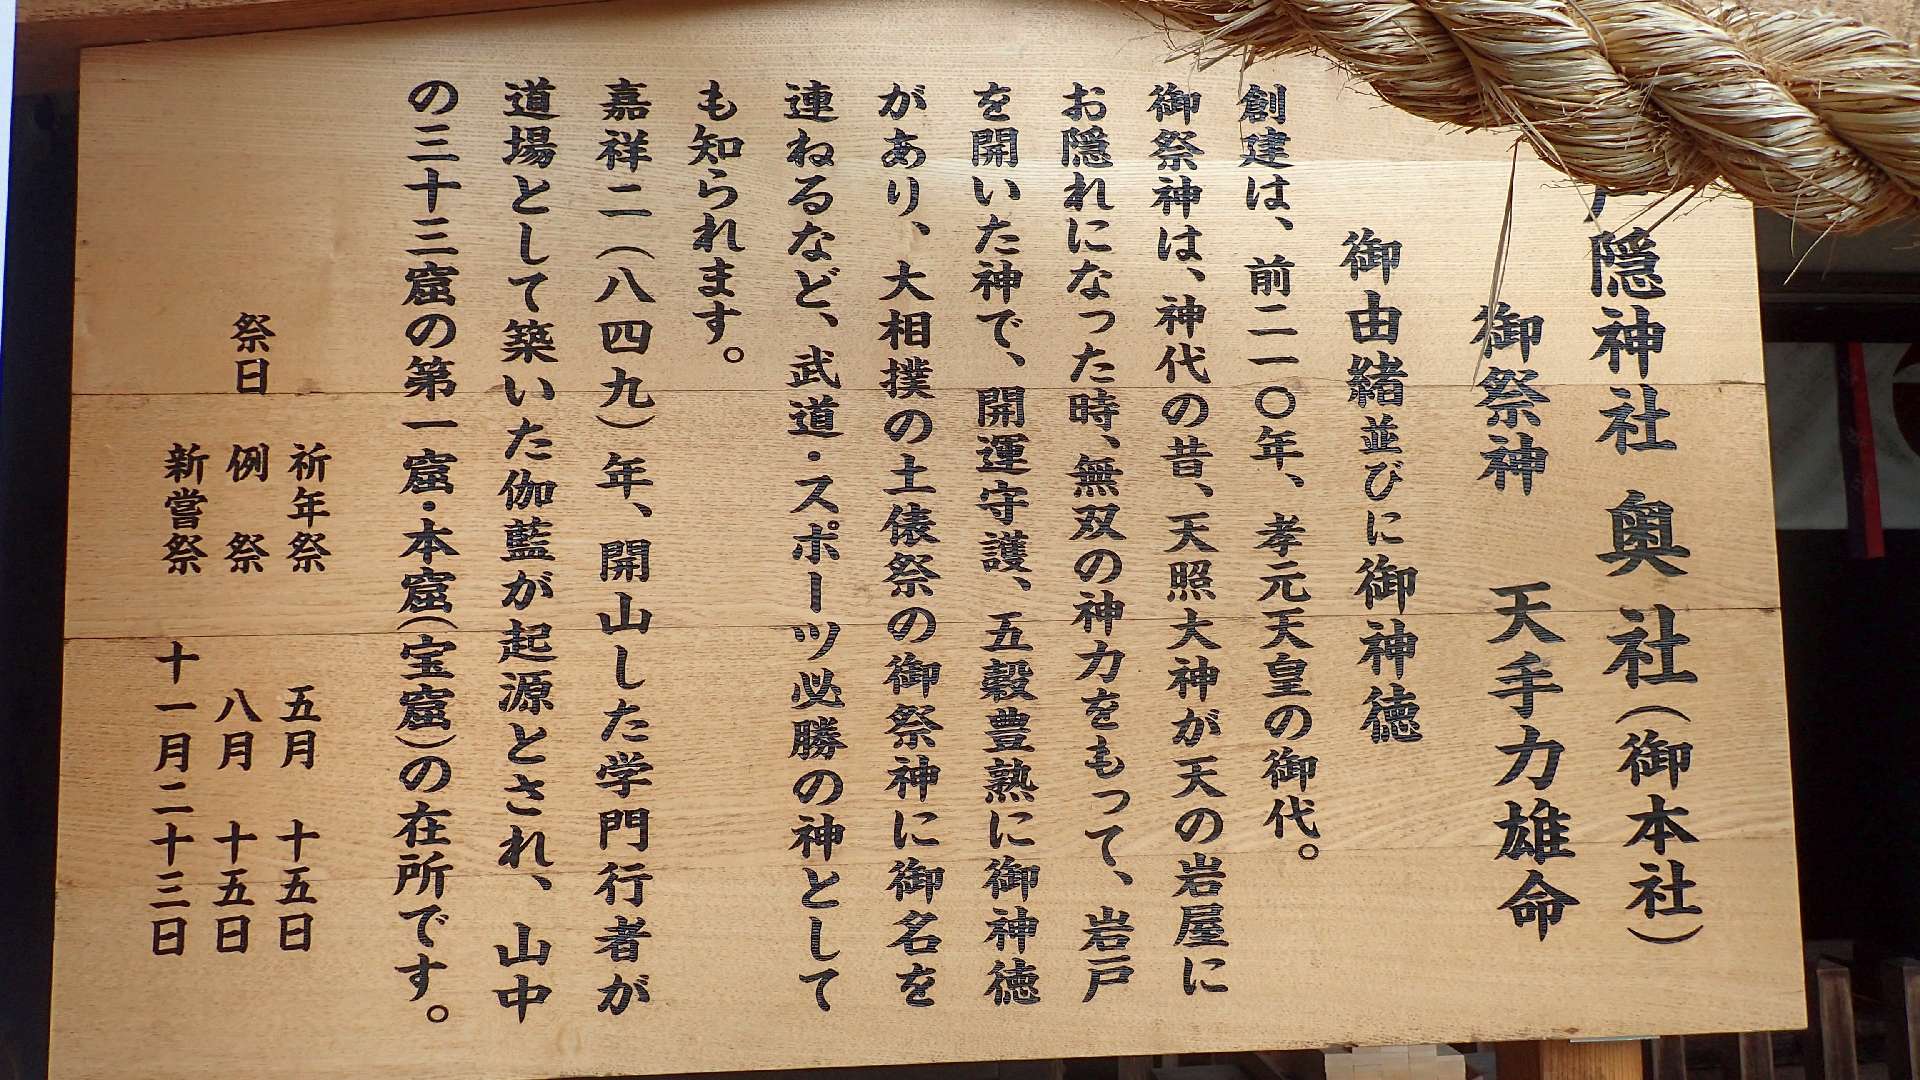 戸隠神社 奥社（御本社）
御祭神 天手力雄命
御由緒並びに御神徳
創建は、前二一〇年、孝元天皇の御代。
御祭神は、神代の昔、天照大神が天の岩屋に
お隠れになった時、無双の神力をもって、岩戸
を開いた神で、開運守護、五穀豊熟に御神徳
があり、大相撲の土俵祭の御祭神に御名を
連ねるなど、武道・スポーツ必勝の神として
も知られます。
嘉祥二（八四九）年、開山した学門行者が
道場として築いた伽藍が起源とされ、山中
の三十三窟の第一窟・本窟（宝窟）の在所です。
祭日
祈年祭 五月 十五日
例祭 八月 十五日
新嘗祭 十一月二十三日